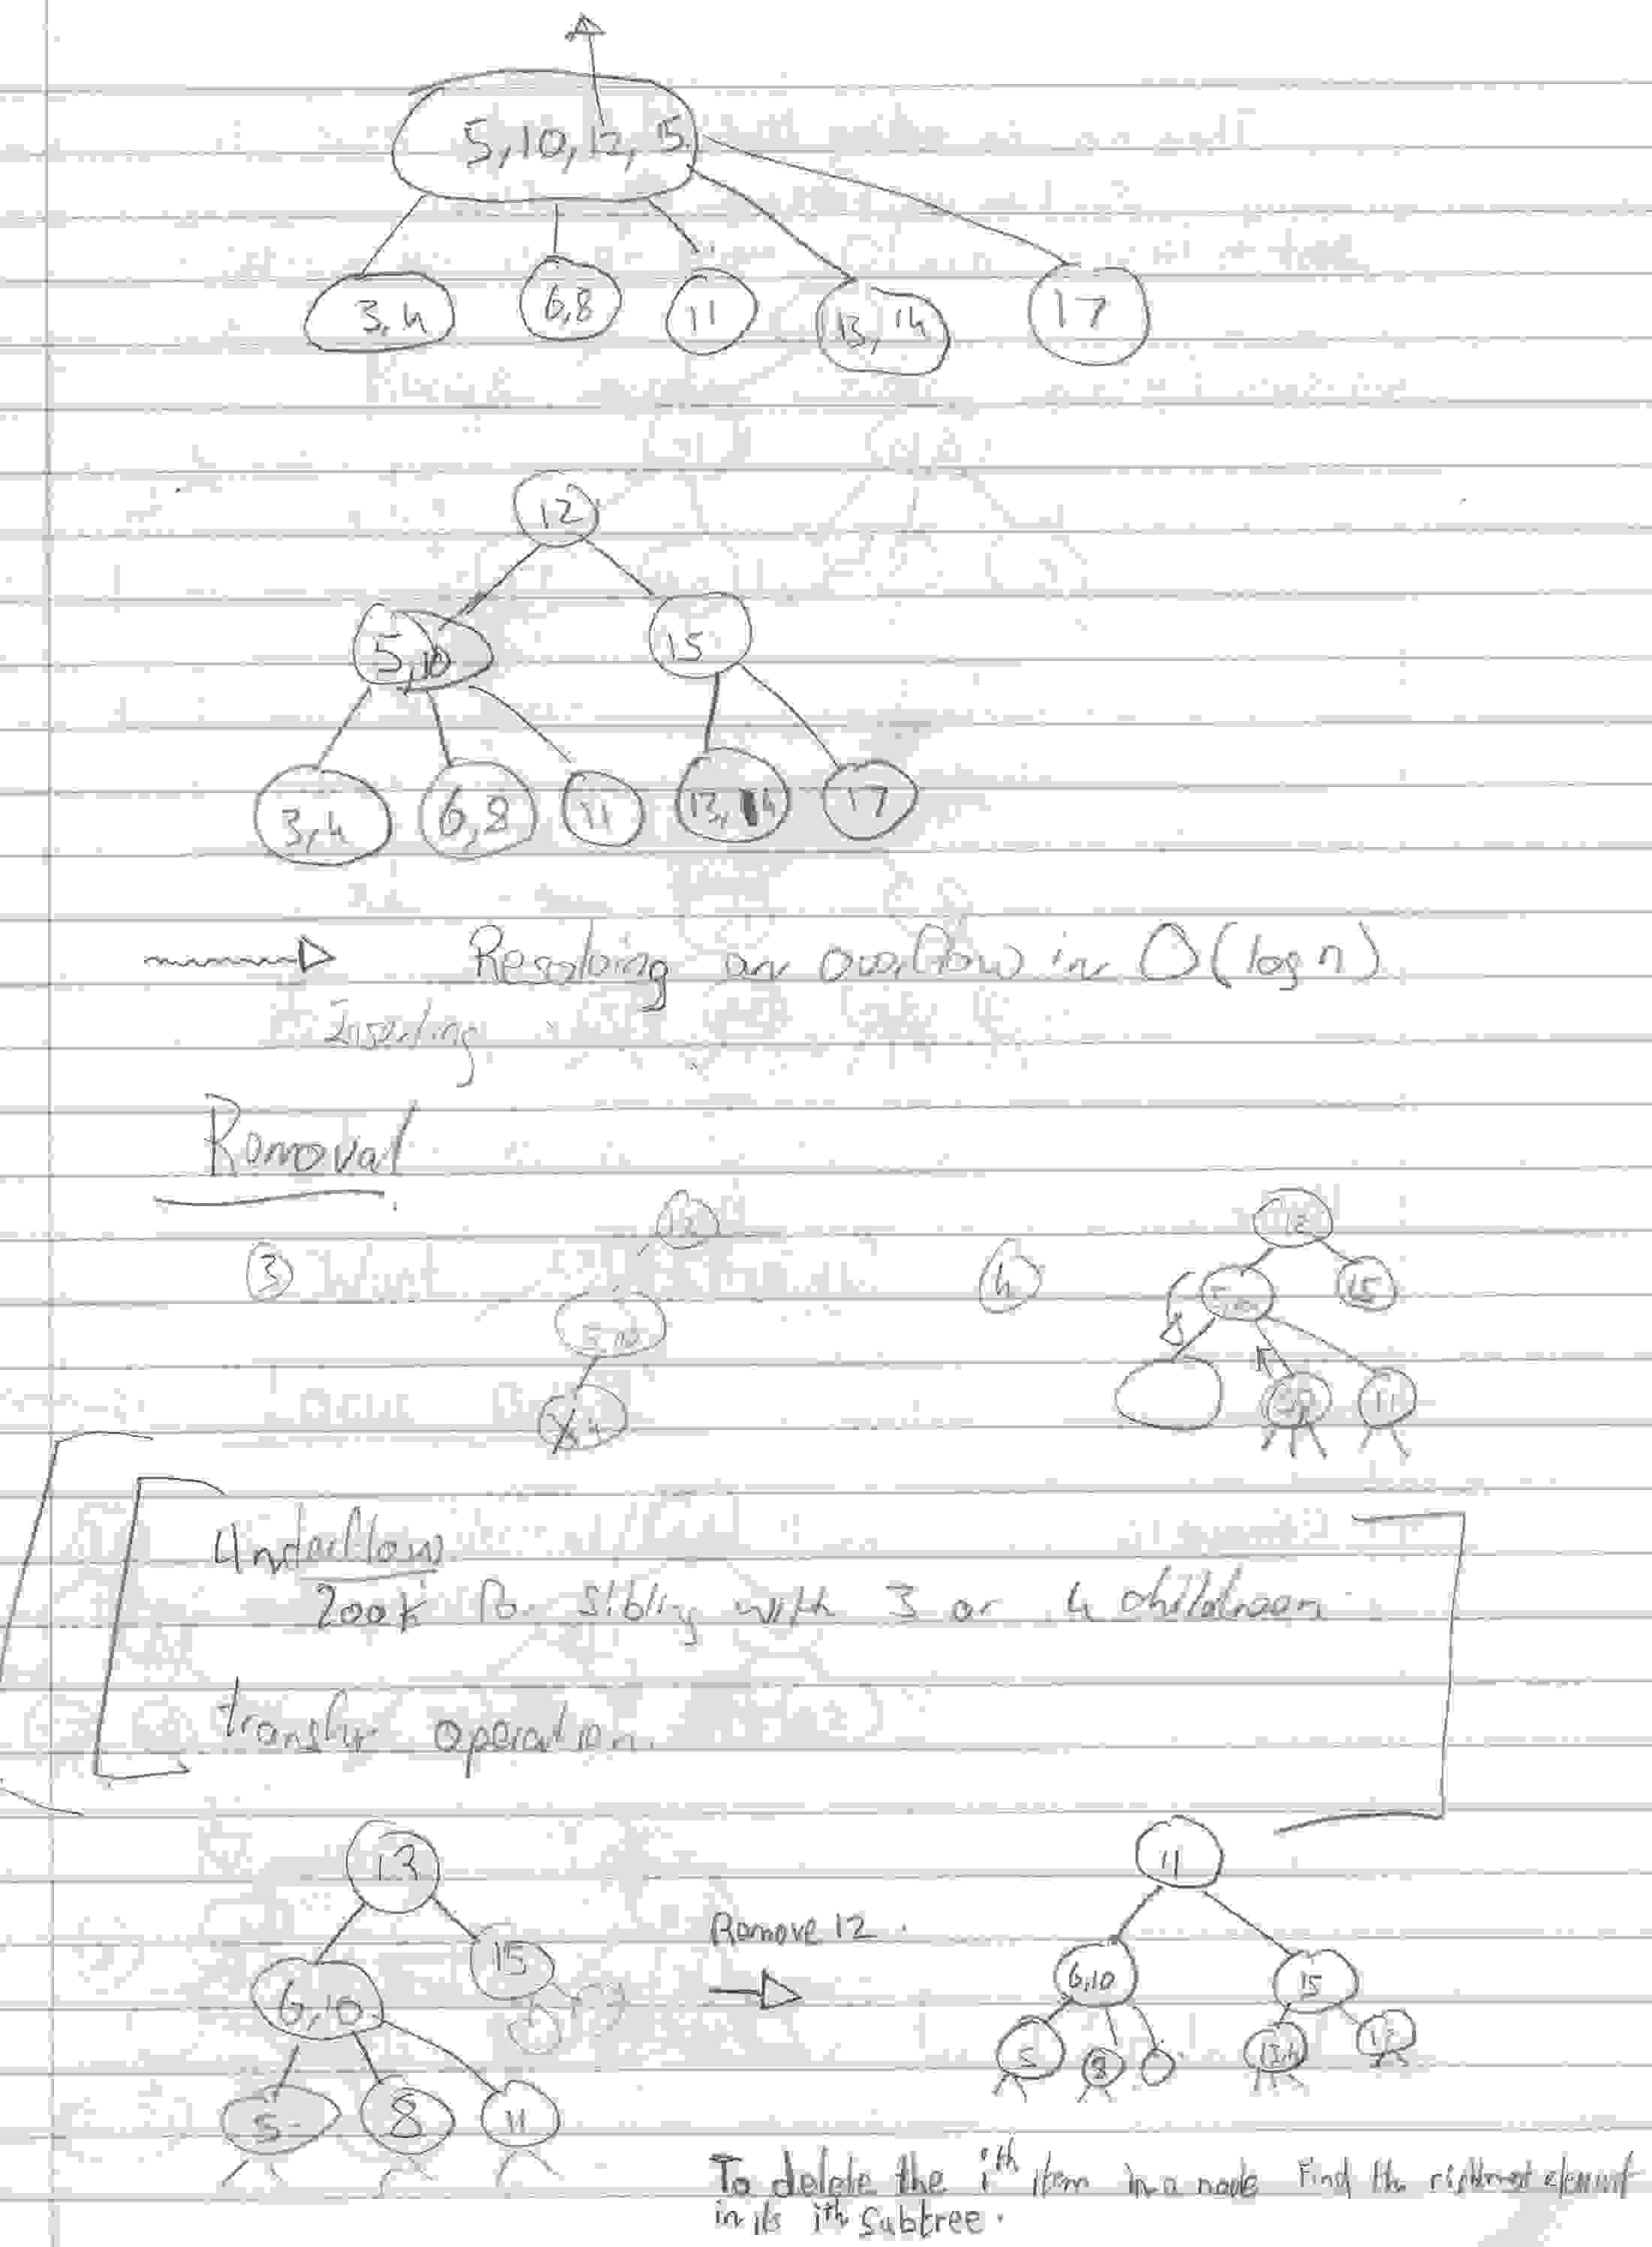 5, 10, 12, 15
3, 4
6, 8
11
13, 14
17
12
5, 10
15
3, 4
6, 8
11
13, 14
17
Resolving an overflow in O(log n)
Inserting
Removal
3
12
4
12
5, 10
15
4
11
Underflow
Look for sibling with 3 or 4 children
transfer operation.
13
11
15
Remove 12.
6, 10
6, 10
15
5
8
5
8
11
To delete the ith item in a node Find the rightmost element
in its ith Subtree.